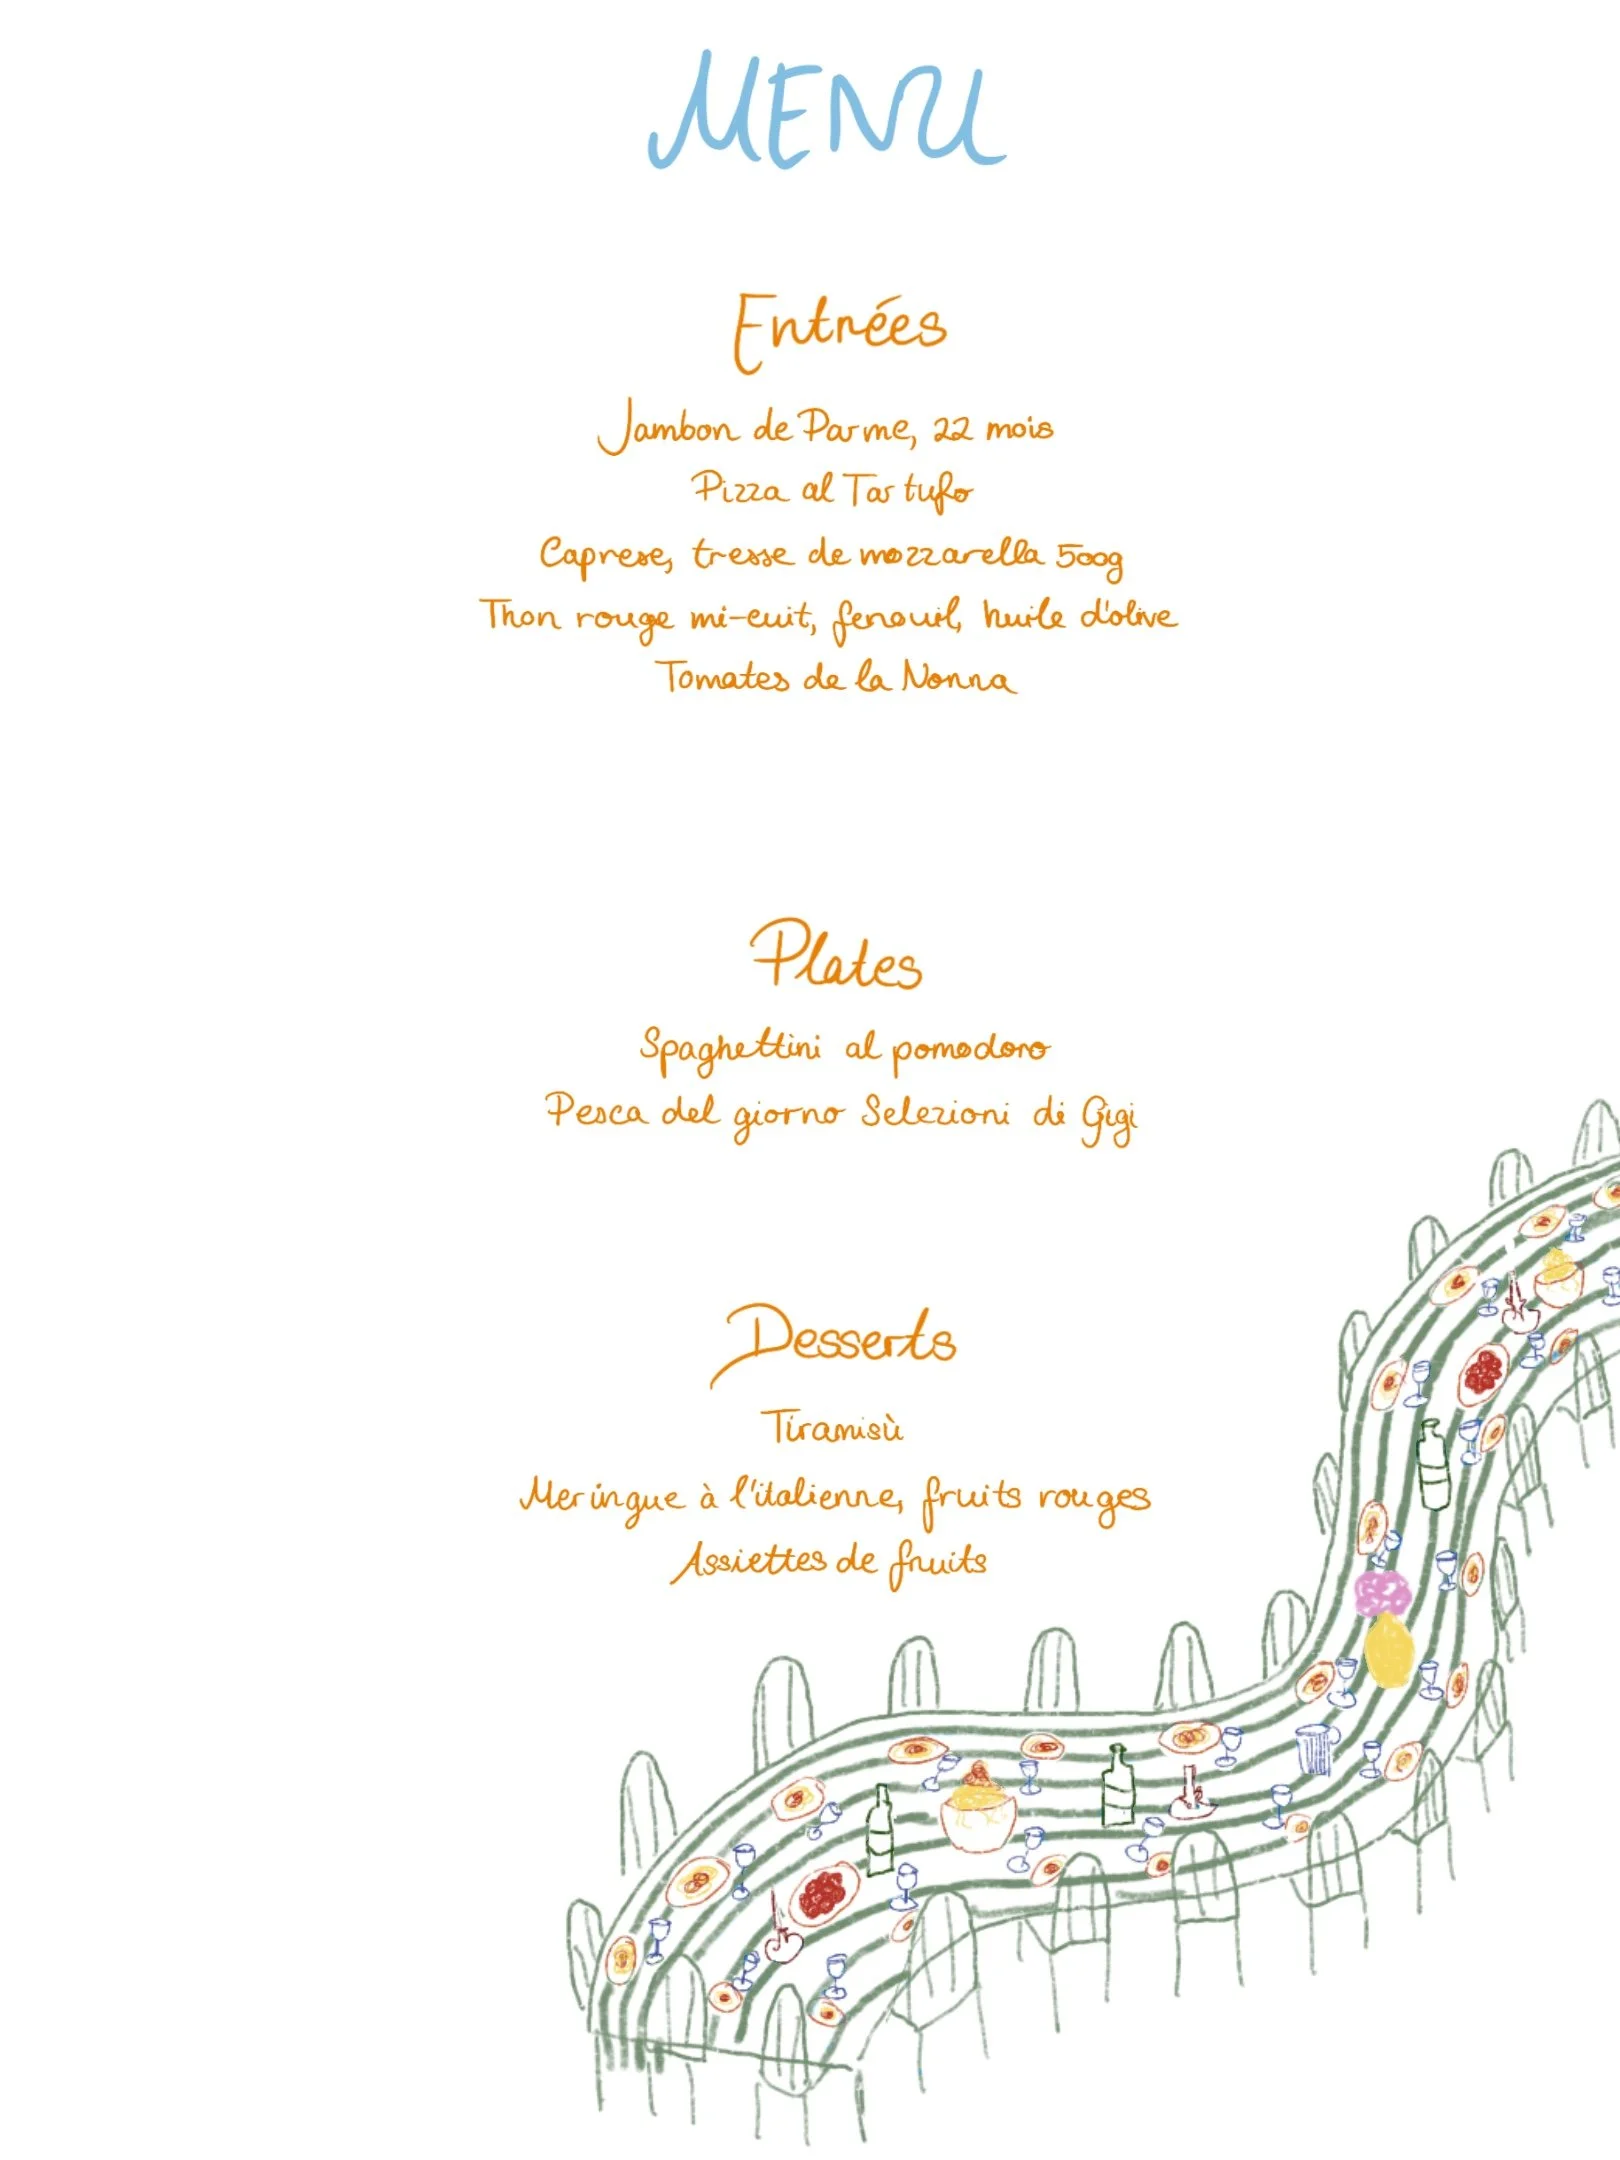 MENU
Entrées
Jambon de Parme, 22 mois
Pizza al Tartufo
Caprese, tresse de mozzarella 500g
Thon rouge mi-cuit, fenouil, huile d'olive
Tomates de la Nonna
Plates
Spaghettini al pomodoro
Pesca del giorno Selezioni di Gigi
Desserts
Tiramisù
Meringue à l'italienne, fruits rouges
Assiettes de fruits